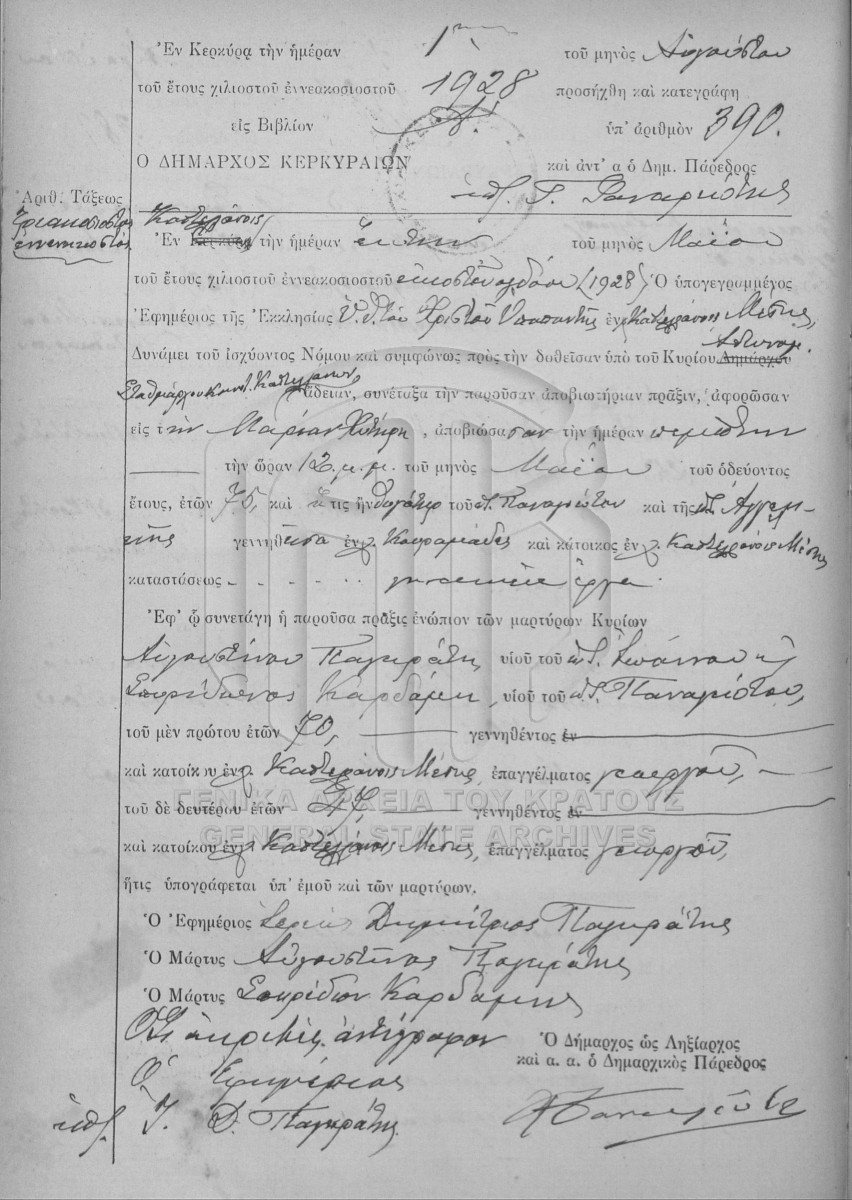 Ἐν Κερκύρᾳ τὴν ἡμέραν 1ην τοῦ μηνὸς Αὐγούστου
τοῦ ἔτους χιλιοστοῦ ἐννεακοσιοστοῦ 1928 προσήχθη καὶ κατεγράφη
εἰς Βιβλίον Α! ὑπ' ἀριθμὸν 390.
Ο ΔΗΜΑΡΧΟΣ ΚΕΡΚΥΡΑΙΩΝ καὶ ἀντ' α ὁ Δημ. Πάρεδρος
Ἀριθ. Τάξεως
Τριακοσιοστὸς
ἐνενηκοστὸς
Καστελάνοις
Ἐν Κερκύρᾳ τὴν ἡμέραν ἕκτην τοῦ μηνὸς Μαΐου
τοῦ ἔτους χιλιοστοῦ ἐννεακοσιοστοῦ εἰκοστοῦ ὀγδόου (1928) Ὁ ὑπογεγραμμένος
Ἐφημέριος τῆς Ἐκκλησίας τοῦ Χριστοῦ Ὑπαπαντῆς ἐν Καστελάνοις Μέσης,
Ἀστυνομ.
Δυνάμει τοῦ ἰσχύοντος Νόμου καὶ συμφώνως πρὸς τὴν δοθεῖσαν ὑπὸ τοῦ Κυρίου Δημάρχου
Σταθμάρχου Καστελάνων,
ἄδειαν, συνέταξα τὴν παροῦσαν ἀποβιωτήριαν πρᾶξιν, ἀφορῶσαν
εἰς τὴν Μαρίαν, ἀποβιώσασαν τὴν ἡμέραν πέμπτην
τὴν ὥραν 12 μ.μ. τοῦ μηνὸς Μαΐου τοῦ ὁδεύοντος
ἔτους, ἐτῶν 75, καὶ ἥτις ἦν θυγάτηρ τοῦ π. Παναγιώτου καὶ τῆς π. Ἀγγελι-
κῆς γεννηθεῖσα ἐν χ. καὶ κάτοικος ἐν χ. Καστελάνοις Μέσης
καταστάσεως - - - - - γυναικεῖα ἔργα.
Ἐφ' ᾧ συνετάγη ἡ παροῦσα πρᾶξις ἐνώπιον τῶν μαρτύρων Κυρίων
Αὐγουστίνου Παγκράτη υἱοῦ τοῦ π. Ἰωάννου κ
Σπυρίδωνος Καρδάμη, υἱοῦ τοῦ π. Παναγιώτου,
τοῦ μὲν πρώτου ἐτῶν 70, γεννηθέντος ἐν
καὶ κατοίκου ἐν χ. Καστελάνοις Μέσης, ἐπαγγέλματος γεωργοῦ,
τοῦ δὲ δευτέρου ἐτῶν γεννηθέντος ἐν
ΓΕΝΙΚΑ ΑΡΧΕΙΑ ΤΟΥ ΚΡΑΤΟΥΣ
GENERAL STATE ARCHIVES
καὶ κατοίκου ἐν χ. Καστελάνοις Μέσης, ἐπαγγέλματος γεωργοῦ,
ἥτις ὑπογράφεται ὑπ' ἐμοῦ καὶ τῶν μαρτύρων.
Ὁ Ἐφημέριος Ἱερεὺς Δημήτριος Παγκράτης
Ὁ Μάρτυς Αὐγουστῖνος Παγκράτης
Ὁ Μάρτυς Σπυρίδων Καρδάμης
Ὅτι ἀκριβὲς ἀντίγραφον
Ὁ Ἐφημέριος
ὑπ. Ἱ. Δ. Παγκράτης.
Ὁ Δήμαρχος ὡς Ληξίαρχος
καὶ α. α. ὁ Δημαρχικὸς Πάρεδρος